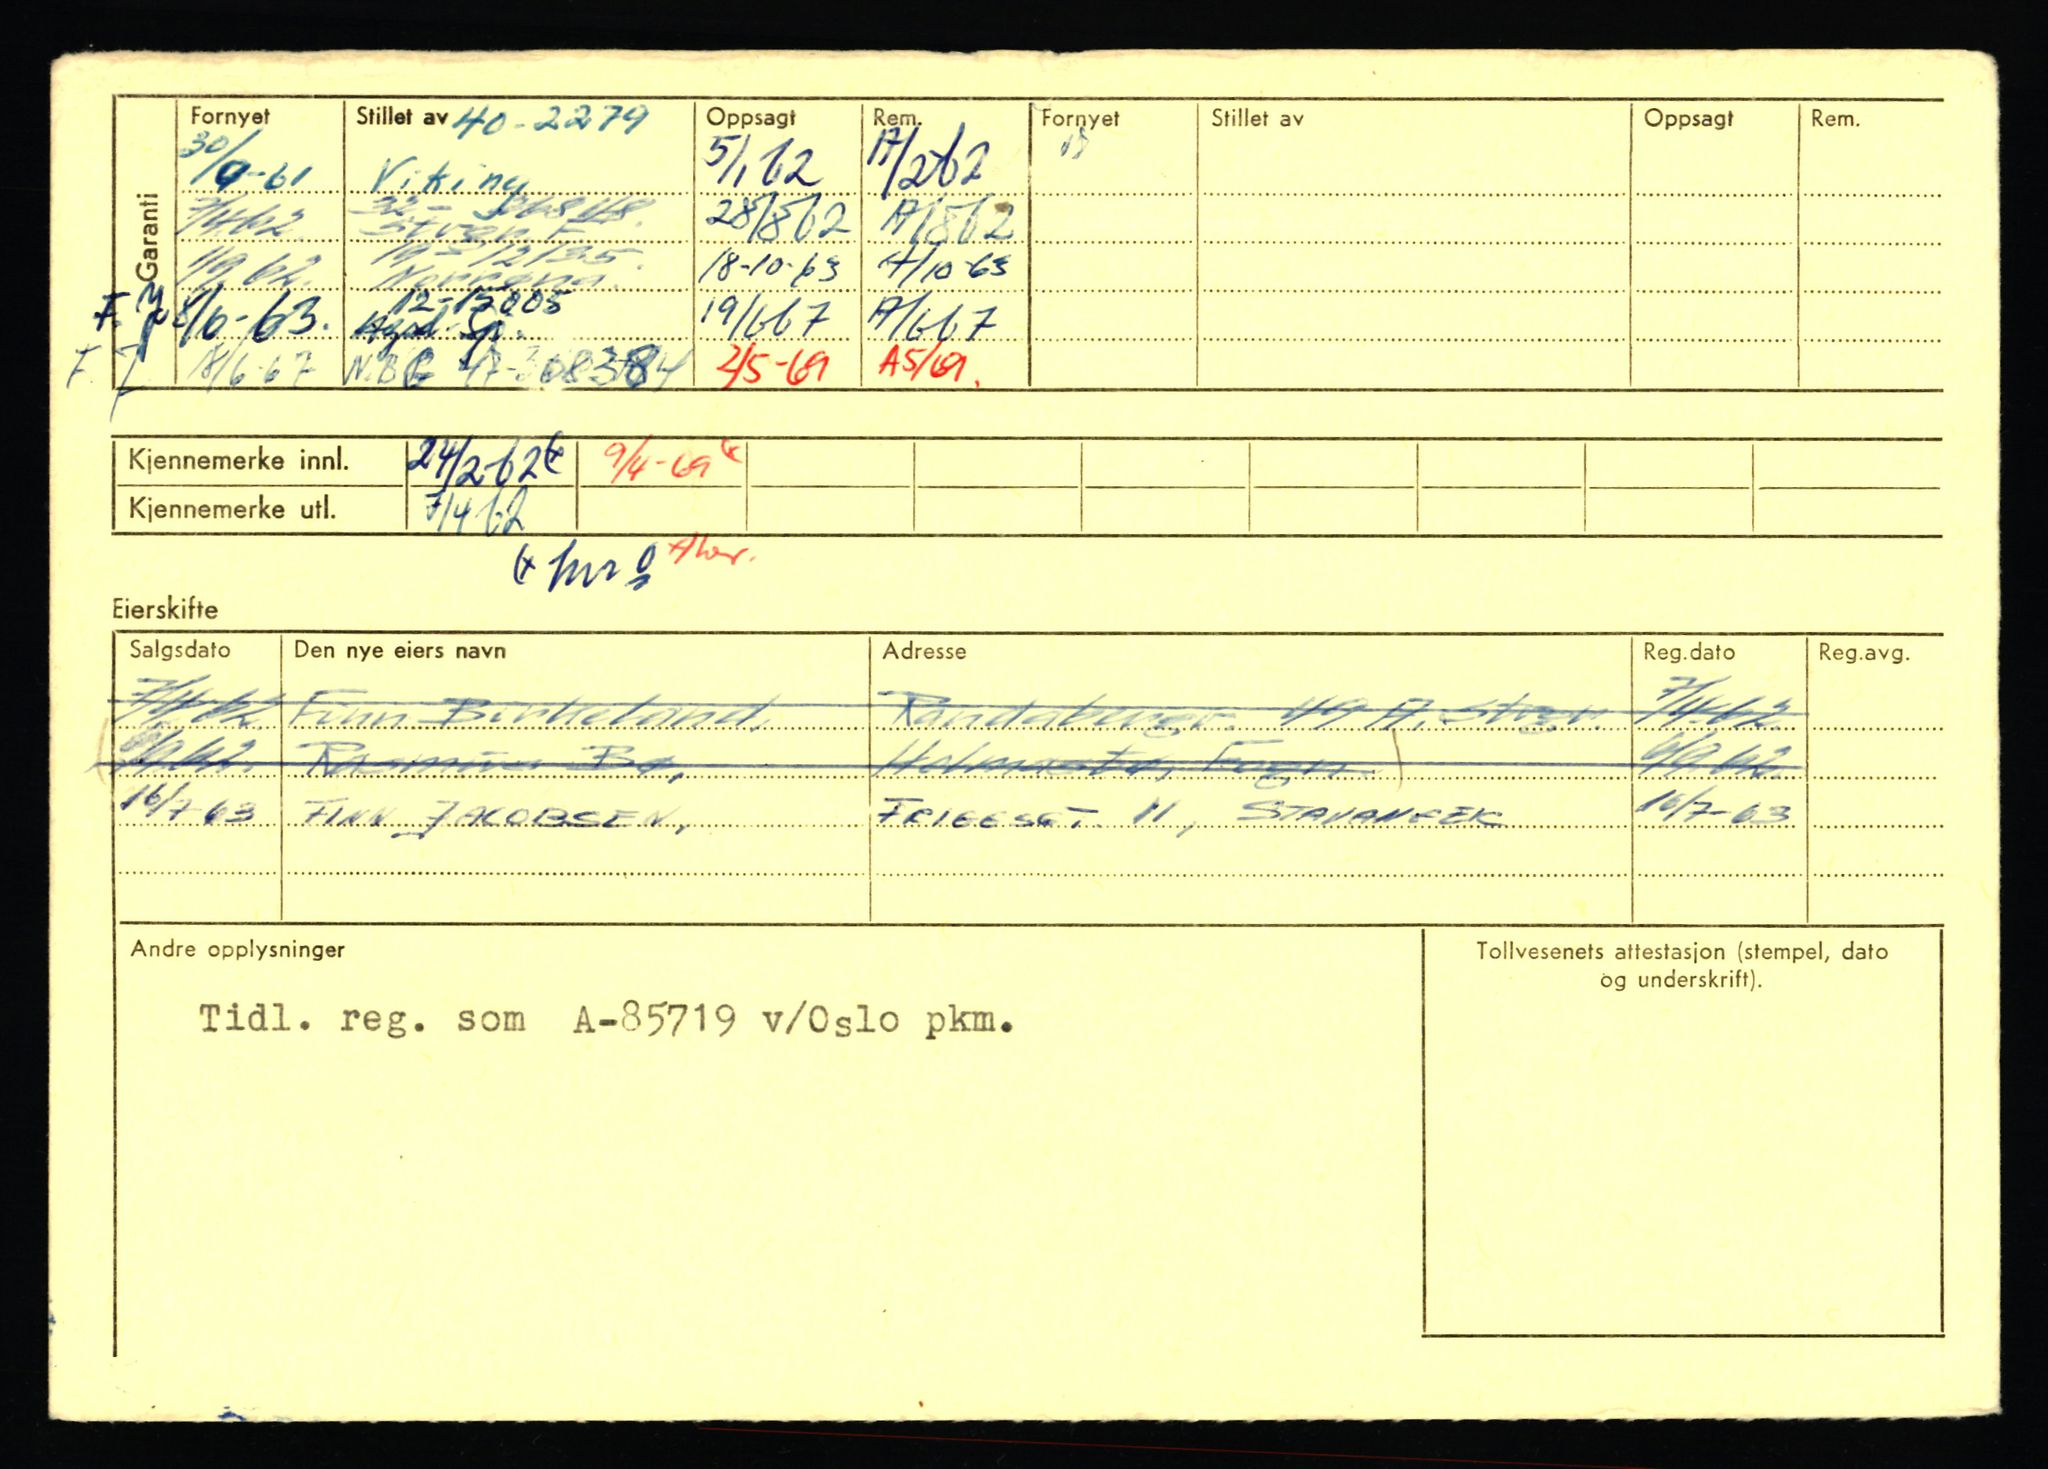 Garanti
Fornyet Stillet av 40-2279 Oppsagt Rem. Fornyet Stillet av Oppsagt Rem.
30/9-61 Viking 5/1 62 A/2 62
7/4 62. Stvgr. F. 28/8 62 A/8 62
1/9 62. 19-12135. Norrøna. 18-10-63 A/10-63
F. J. 8/6-63. 12-13005 19/6 67 A/6 67
F. J. 18/6-67 2/5-69 A5/69.
Kjennemerke innl. 24/2-62 9/4-69
Kjennemerke utl. 7/4 62
Eierskifte
Salgsdato Den nye eiers navn Adresse Reg.dato Reg.avg.
7/4 62 Finn Birkeland. Randabergv. 49 A. Stvgr. 7/4-62.
Rasmus Bø, Fogn. 6/9 62.
16/7 63 FINN JACOBSEN, 11, STAVANGER 16/7-63
Andre opplysninger
Tollvesenets attestasjon (stempel, dato
og underskrift).
Tidl. reg. som A-85719 v/Oslo pkm.